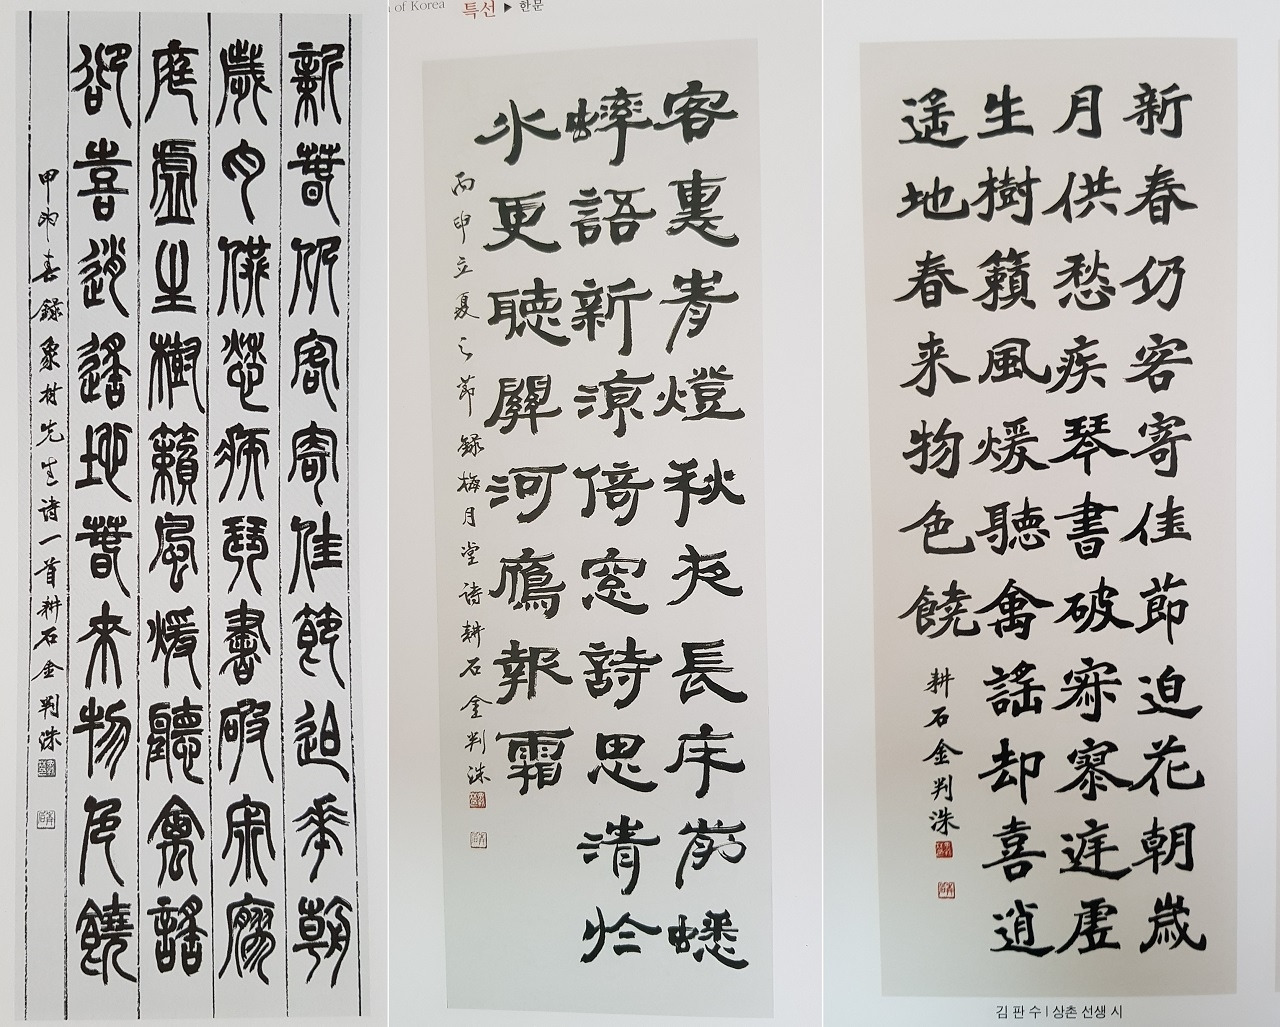 of Korea 특선 ▶ 한문
新春仍客寄佳節迫華朝
歲月供愁疾琴書破寂寥
庭虛生樹籟風煖聽禽謠
却喜逍遙地春來物色饒
甲午春錄象村先生詩一首耕石金判洙
客裏靑燈秋夜長床前蟋
蟀語新凉倚窓詩思淸於
水更聽關河鴈報霜
丙申立夏之節錄梅月堂詩耕石金判洙
新春仍客寄佳節迫花朝歲
月供愁疾琴書破寂寥庭虛
生樹籟風煖聽禽謠却喜逍
遙地春来物色饒
耕石金判洙
김 판 수 | 상촌 선생 시